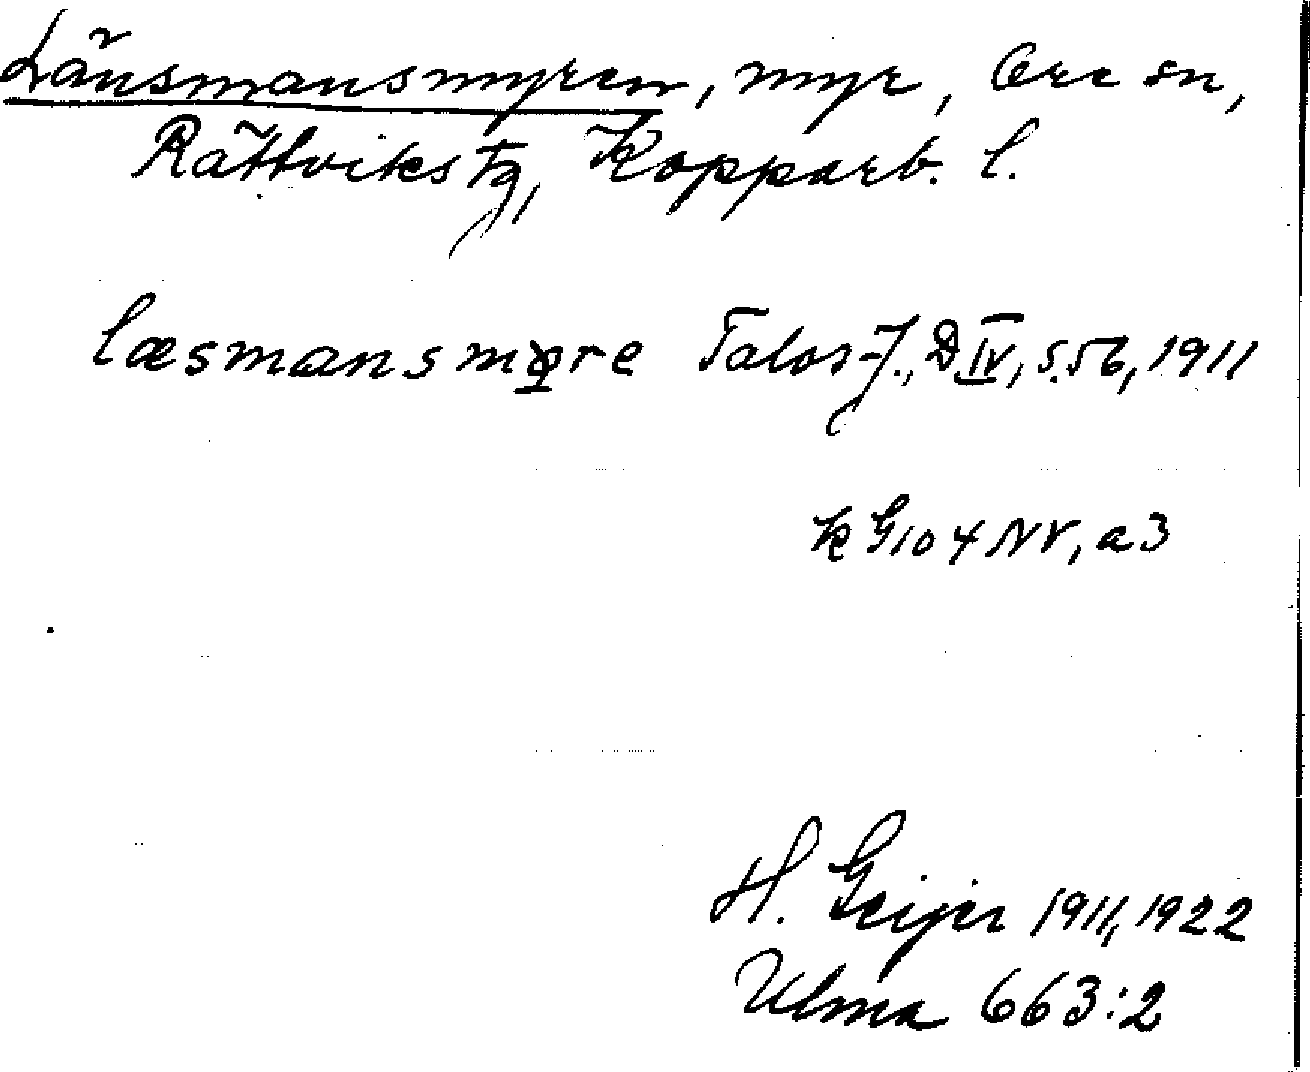 Länsmansmyren, myr, Ore sn,
Rättviks tg, Kopparb. l.
læsmansmyre Talos J., D IV, s. 56, 1911
k G104 NV, a3
H. Geijer 1911, 1922
Ulma 663:2